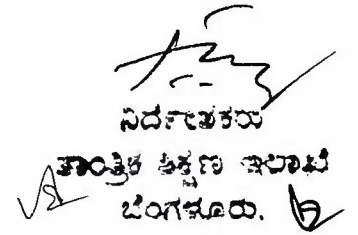 ನಿರ್ದೇಶಕರು
ತಾಂತ್ರಿಕ ಶಿಕ್ಷಣ ಇಲಾಖೆ
ಬೆಂಗಳೂರು.